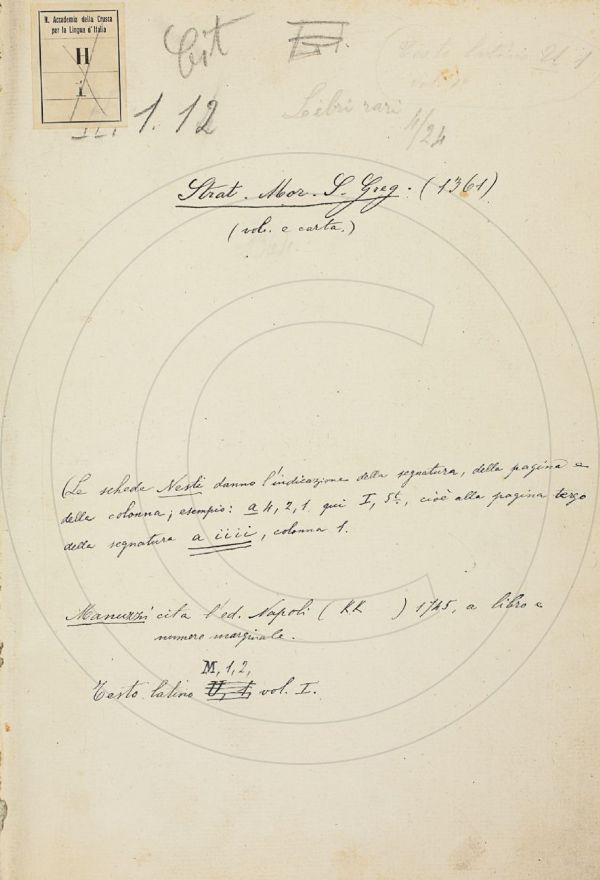 R. Accademia della Crusca
per la Lingua d'Italia
H
1
Cit
II. 1. 12
Testo latino U. 1
Libri rari
4/24
Strat. Mor. S. Greg. (1361)
(vol. e carta.)
(Le schede Nesti danno l'indicazione della segnatura, della pagina e
della colonna; esempio: a 4, 2, 1 qui I, 5t., cioè alla pagina tergo
della segnatura a iiii, colonna 1.
Manuzzi cita l'ed. Napoli (KK ) 1745, a libro e
numero marginale.
M, 1, 2,
Testo latino U, 1, vol. I.